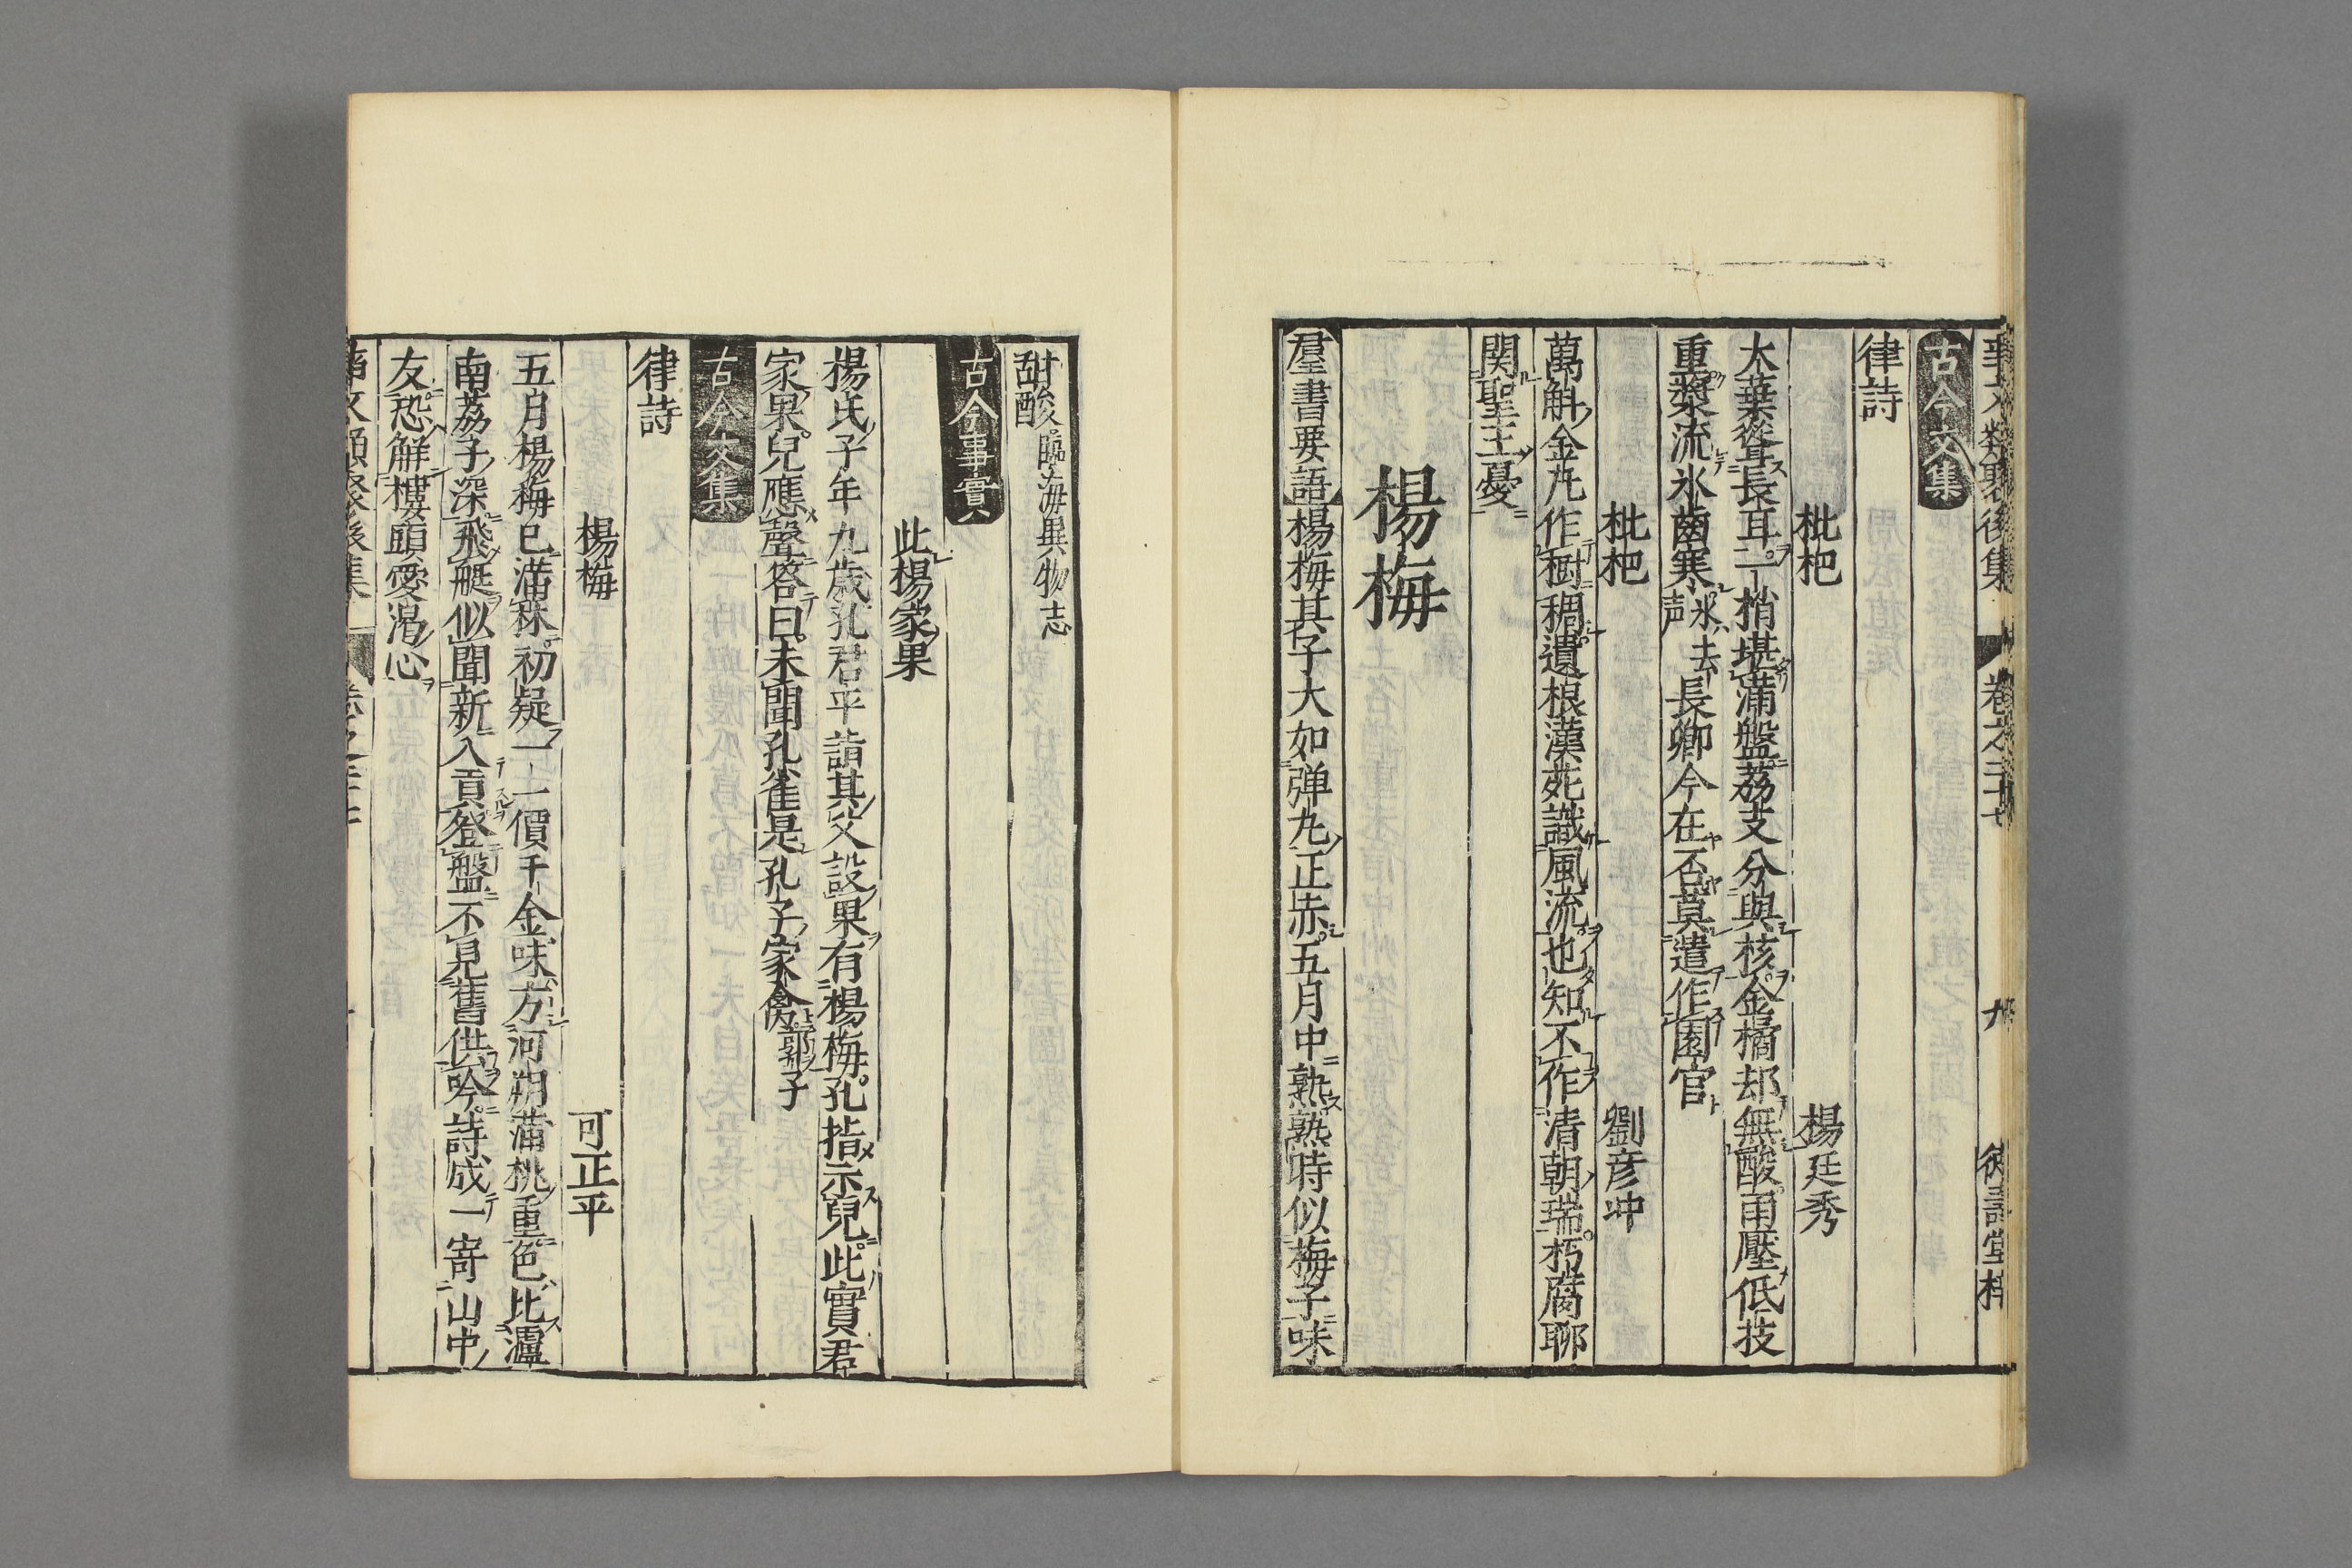 事文類聚後集 卷之二十七 九 德壽堂梓
古今文集
律詩
枇杷 楊廷秀
大葉聳長耳一梢堪滿盤荔支分與核金橘却無酸雨壓低技
重漿流氷齒寒氷去声長卿今在否莫遣作園官
枇杷 劉彦冲
萬斛金丸作樹稠遺根漢苑識風流也知不作清朝瑞朽腐聊
関聖主憂
楊梅
羣書要語楊梅其子大如弹九正赤五月中熟熟時似梅子味
甜酸臨海異物志
古今事實
此楊家果
楊氏子年九歳孔君平詣其父設果有楊梅孔指示兒此實君
家果兒應聲答曰未聞孔雀是孔子家禽郭子
古今文集
律詩
楊梅 可正平
五月楊梅已滿林初疑一一價千金味方河朔蒲桃重色比瀘
南荔子深飛艇似聞新入貢登盤不見舊供吟詩成一寄山中
友恐解樓頭愛渴心